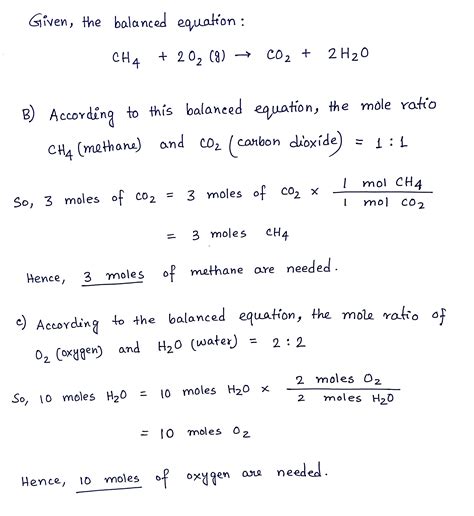 Given, the balanced equation :
CH4 + 2 O2 (g) → CO2 + 2H2O
B) According to this balanced equation, the mole ratio
CH4 (methane) and CO2 (carbon dioxide) = 1 : 1
So, 3 moles of CO2 = 3 moles of CO2 × 1 mol CH4 / 1 mol CO2
= 3 moles CH4
Hence, 3 moles of methane are needed.
c) According to the balanced equation, the mole ratio of
O2 (oxygen) and H2O (water) = 2 : 2
So, 10 moles H2O = 10 moles H2O × 2 moles O2 / 2 moles H2O
= 10 moles O2
Hence, 10 moles of oxygen are needed.